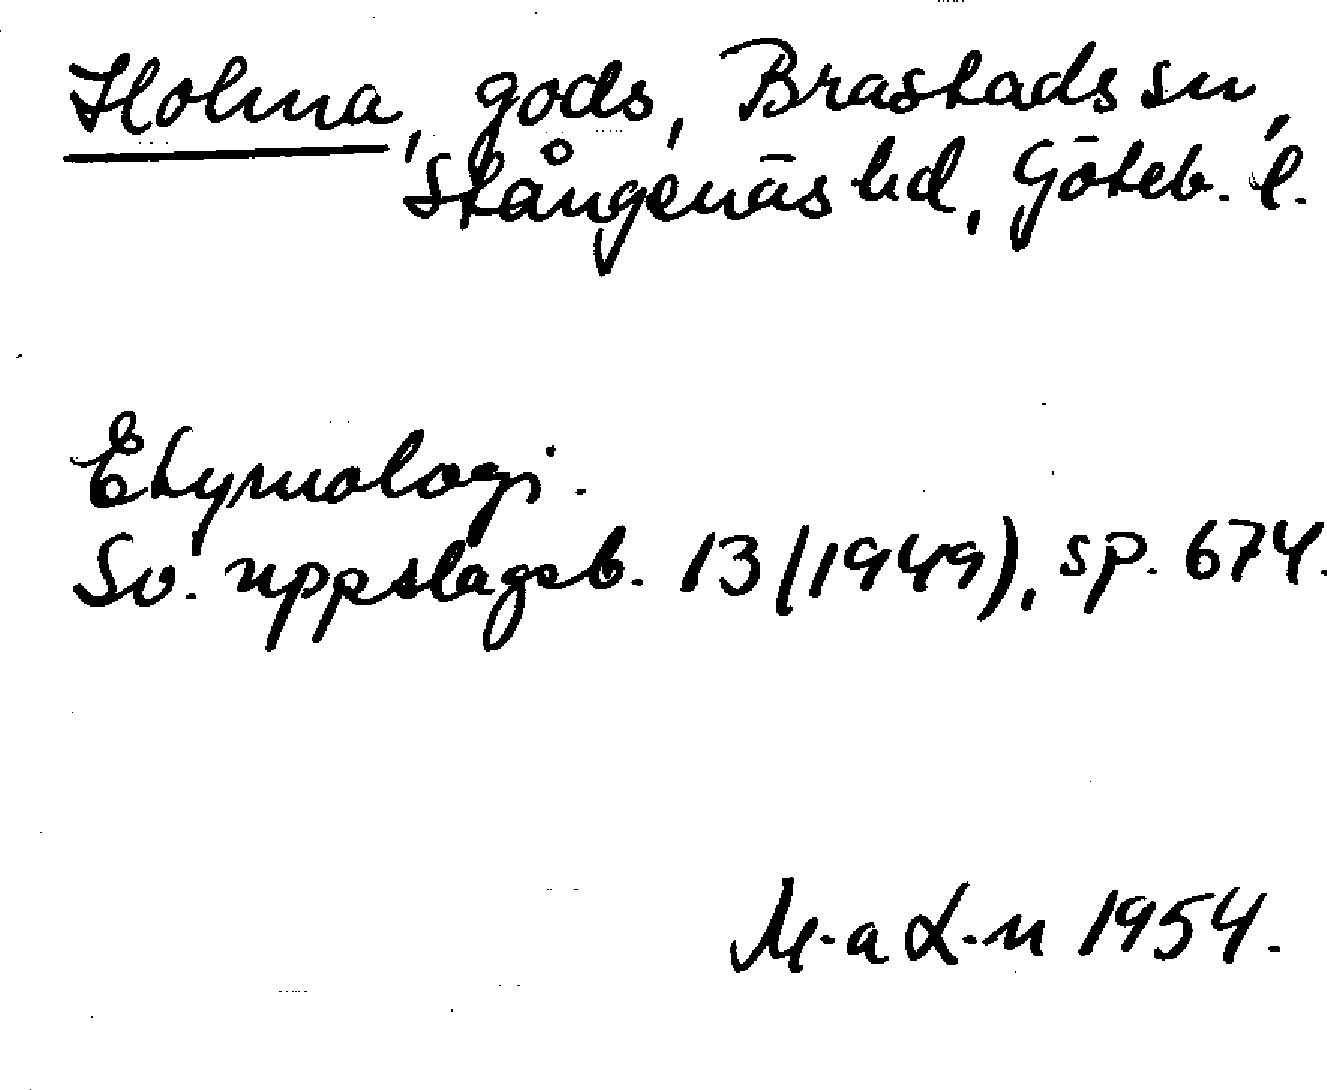 Holma, gods, Brastads sn,
Stångenäs hd, Göteb. l.
Etymologi.
Sv. uppslagsb. 13 (1949), sp. 674.
M-a L-n 1954.